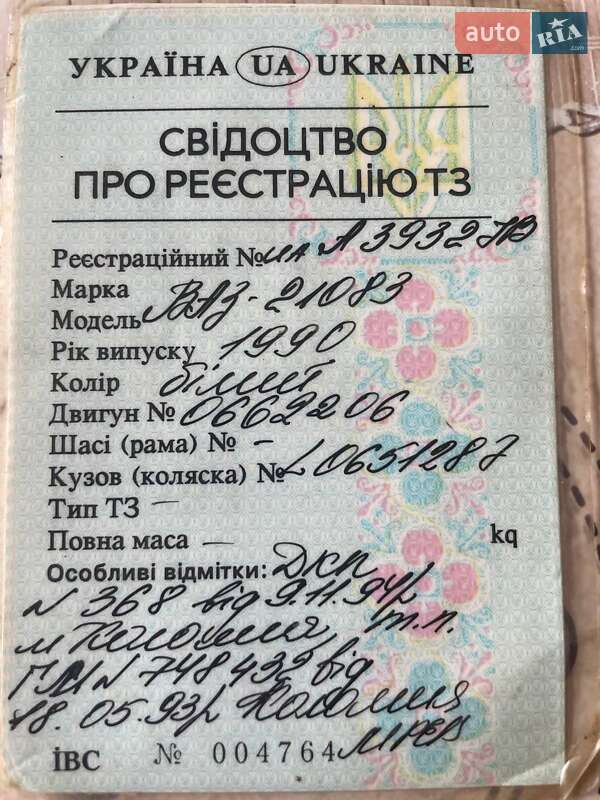 auto RIA.com
УКРАЇНА UA UKRAINE
СВІДОЦТВО
ПРО РЕЄСТРАЦІЮ ТЗ
Реєстраційний № А 3932
Марка
Модель ВАЗ-21083
Рік випуску 1990
Колір білий
Двигун № 0662206
Шасі (рама) № -
Кузов (коляска) № L0651287
Тип ТЗ —
Повна маса — kq
Особливі відмітки: ДКП
N 368 від 9.11.94р
м Коломия, т.п.
N 748432 від
18.05.93р Коломия
ІВС № 004764 МРЕВ